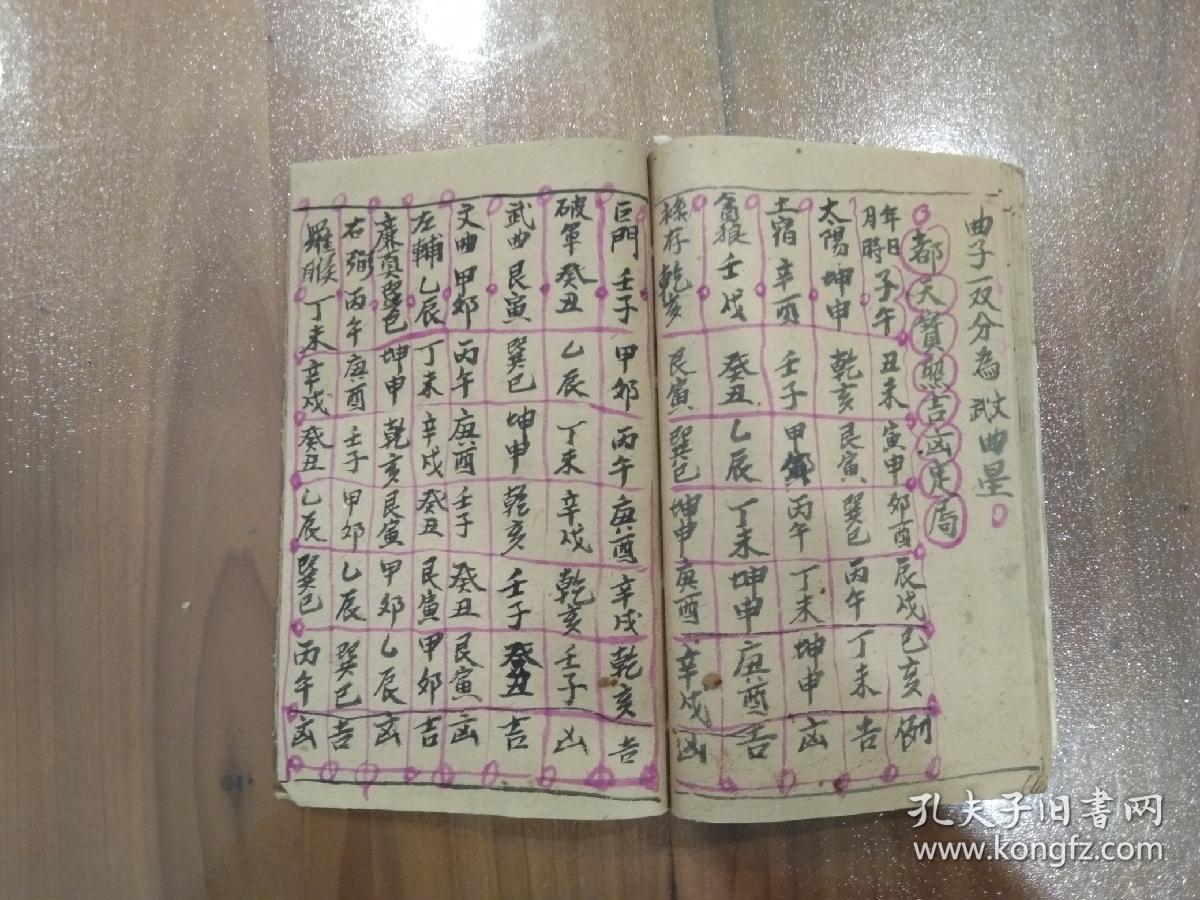 曲子一双分為 武曲星
都天寶照吉凶定局
年月日時 子午 丑未 寅申 卯酉 辰戌 巳亥 例
太陽 坤申 乾亥 艮寅 巽巳 丙午 丁未 吉
土宿 辛酉 壬子 甲卯 丙午 丁未 坤申 凶
貪狼 壬戌 癸丑 乙辰 丁未 坤申 庚酉 吉
祿存 乾亥 艮寅 巽巳 坤申 庚酉 辛戌 凶
巨門 壬子 甲卯 丙午 庚酉 辛戌 乾亥 吉
破軍 癸丑 乙辰 丁未 辛戌 乾亥 壬子 凶
武曲 艮寅 巽巳 坤申 乾亥 壬子 癸丑 吉
文曲 甲卯 丙午 庚酉 壬子 癸丑 艮寅 凶
左輔 乙辰 丁未 辛戌 癸丑 艮寅 甲卯 吉
廉貞 巽巳 坤申 乾亥 艮寅 甲卯 乙辰 凶
右弼 丙午 庚酉 壬子 甲卯 乙辰 巽巳 吉
羅睺 丁未 辛戌 癸丑 乙辰 巽巳 丙午 凶
孔夫子旧书网
www.kongfz.com